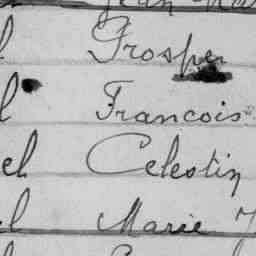 Jean
l Prosper
l Francois
el Celestin
el Marie